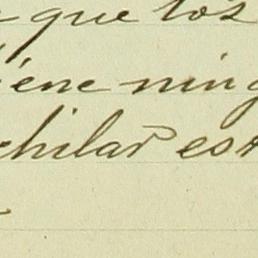 que los
iene ning
chilar est